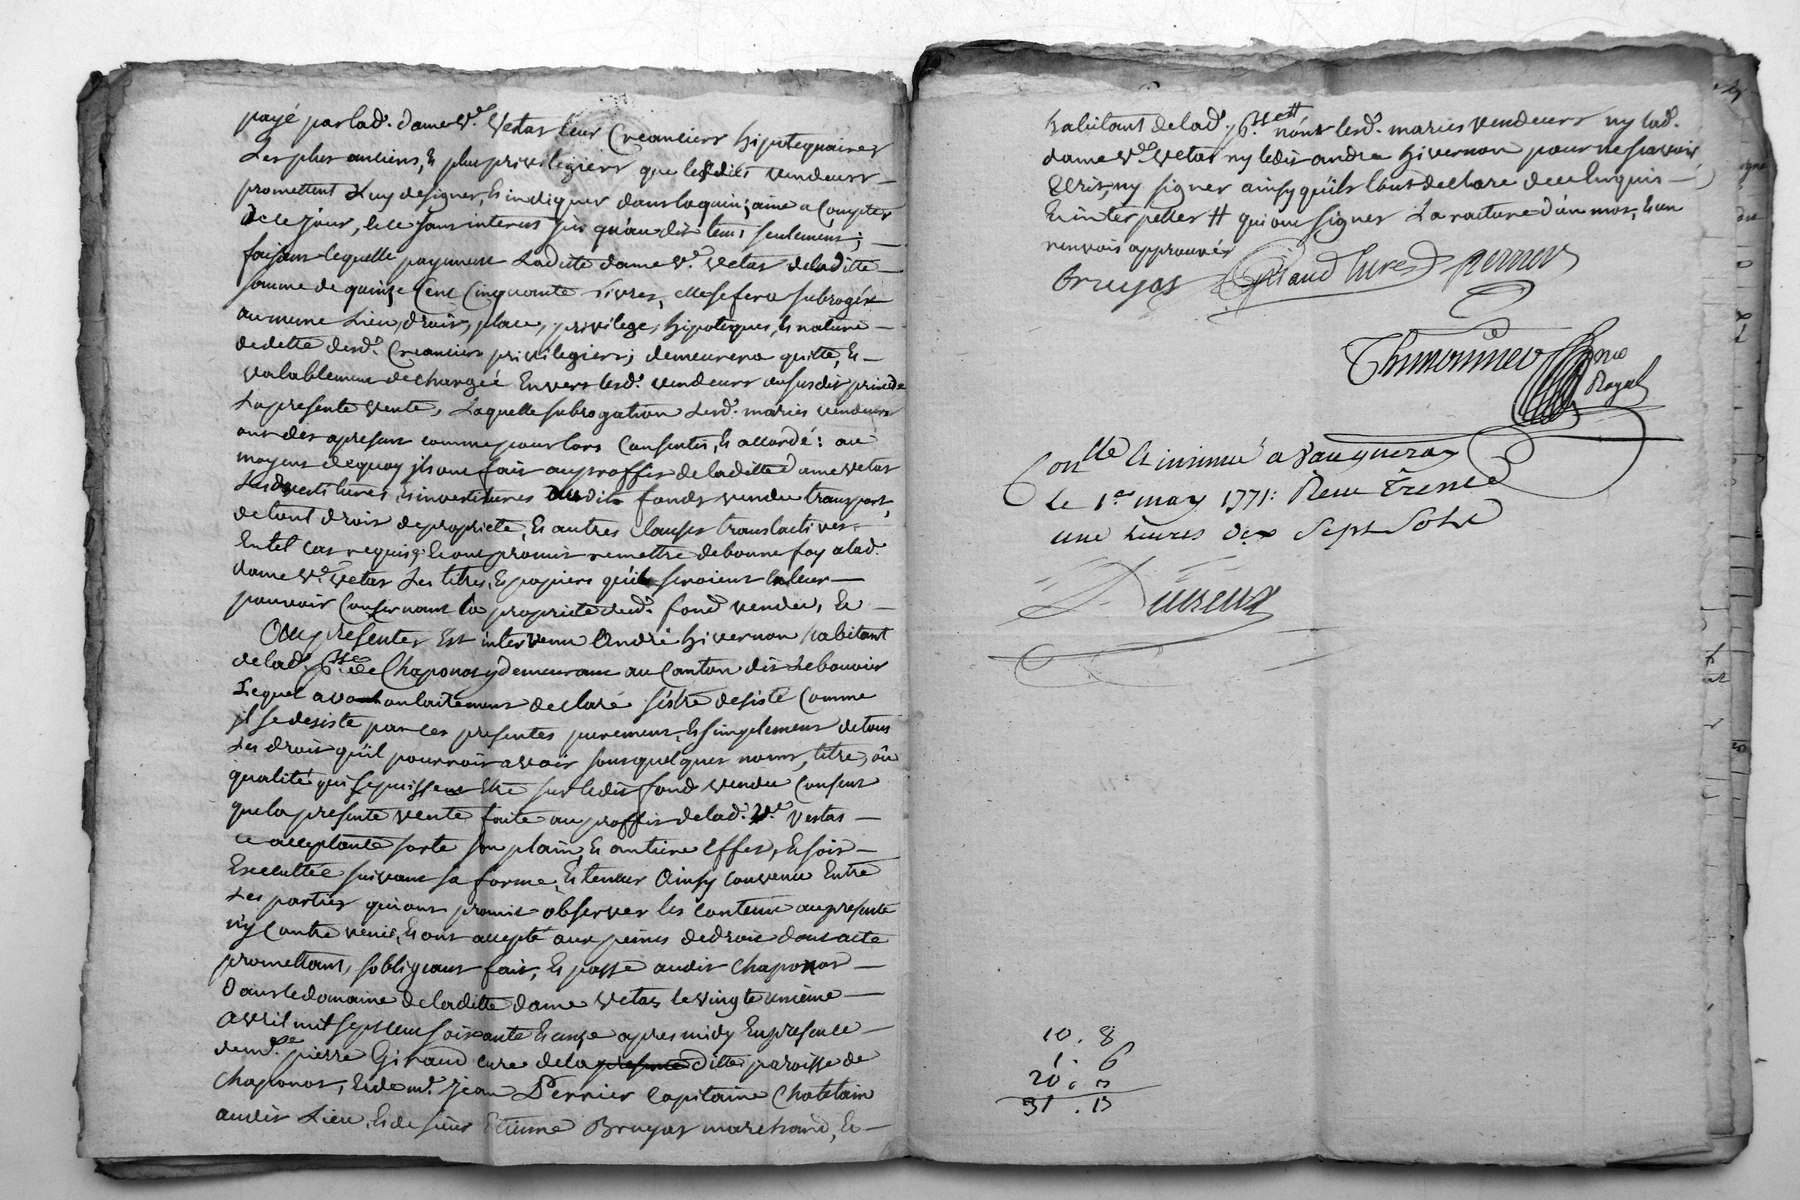 payé par lad. dame Ve. Vetas leur Creanciers hipotequaires
Les plus anciens, & plus privilegiers que lesdits vendeurs
promettent Luy designer, & indiquer dans laquinzaine a Compter
de ce jour, & ce sans interest jusqu'audit tems seulement;
faisant lequelle payement Laditte dame Ve. Vetas de laditte
somme de quinze Cent Cinquante Livres, elle sera subrogée
au meme Lieu, droit, place, privilege, hipoteques, & nature
de dette desd. Creanciers privilegiers; demeurera quitte, &
valablement dechargée Envers lesd. vendeurs du susdit prix de
La presente vente, Laquelle subrogation Lesd. mariés vendeurs
ont des apresent comme pour lors Consentis, & accordé: au
moyens de quoy ils ont fait au proffit de laditte dame vetas
Les devestitures, & investitures dudit fonds vendu transport
de tout droit de proprieté, & autres clauses translactives
En tel cas requis; & ont promis remettre de bonne foy a lad.
dame Ve. Vetas Les titres, & papiers qu'ils seroient En leur
pouvoir Consernant la proprieté dud. fond vendu, &
Aux presentes Est intervenu André hivernon habitant
de lad. psse. de Chaponost y demeurant au Canton dit Le bouvier
Lequel a volontairement declaré s'être desisté Comme
il se desiste par ces presentes purement, & simplement de tous
Les droit qu'il pourroit avoir sous quelques noms, titre, ou
qualité qui se puissent Etre sur ledit fond vendu Consent
que la presente vente faite au proffit de lad. Ve. Vestas
ce acceptante sorte son plain, & entiere Effet, & soit
Executtée suivant sa forme, & teneur Ainsy convenu Entre
Les parties qui ont promis observer les Contenu au presente
n'y Contrevenir, & ont accepté aux peines de droit dont acte
promettant, s'obligeant fait, & passé audit Chaponos
Dans le domaine de laditte dame Vetas le vingt unieme
Avril mil sept cent soixante & onze apres midy En presence
de mre. pierre Giraud curé de la presente ditte paroisse de
Chaponos, & de mr. Jean Perrier Capitaine Chatelain
audit Lieu, & de sieur Etienne Bruyas marchand, &
habitant de lad. psse. # non lesd. mariés vendeurs ny lad.
dame Ve. Vetas ny ledit andré hivernon pour ne sçavoir
Ecrire, ny signer ainsy qu'ils l'ont declaré de ce Enquis
& interpeller # qui ont signer La rature d'un mot, & un
renvois approuvés
Bruyas Giraud Curé Perrier
Thimonnier no.re
Royal
Conlle & insinué a Vaugneray
Le 1er may 1771: Reçu Treise
une Livres dix Sept Sols
Dutreux
10. 8
1. 6
20.
31. 13